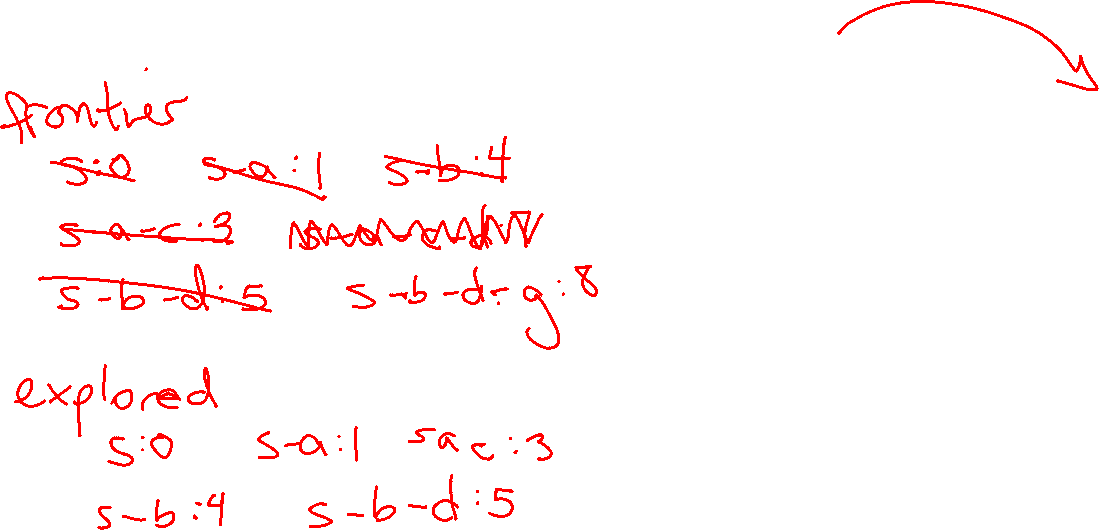 frontier
s:0 s-a:1 s-b:4
s-a-c:3 s-a-c-d:7
s-b-d:5 s-b-d-g:8
explored
s:0 s-a:1 sac:3
s-b:4 s-b-d:5